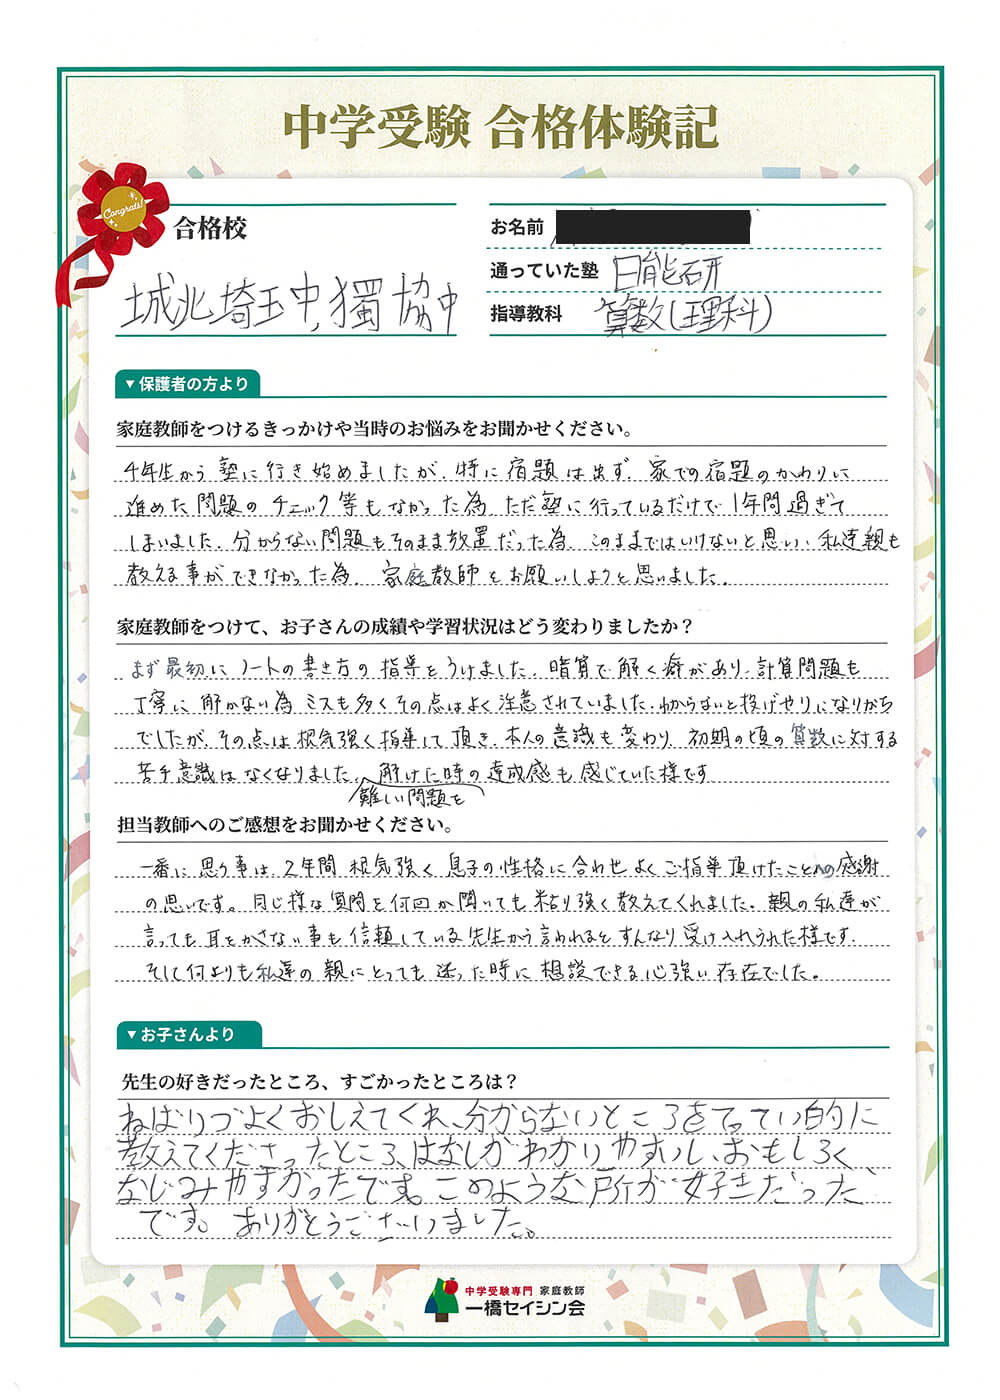 中学受験 合格体験記
Congrats!
合格校
城北埼玉中,獨協中
お名前
通っていた塾 日能研
指導教科 算数(理科)
▼保護者の方より
家庭教師をつけるきっかけや当時のお悩みをお聞かせください。
4年生から塾に行き始めましたが、特に宿題は出ず、家での宿題のかわりに
進めた問題のチェック等もなかった為 ただ塾に行っているだけで1年間過ぎて
しまいました。分からない問題もそのまま放置だった為、このままではいけないと思い、私達親も
教える事ができなかった為、家庭教師をお願いしようと思いました。
家庭教師をつけて、お子さんの成績や学習状況はどう変わりましたか？
まず最初にノートの書き方の指導をうけました。暗算で解く癖があり、計算問題も
丁寧に解かない為ミスも多くその点はよく注意されていました。わからないと投げやりになりがち
でしたが、その点は根気強く指導して頂き、本人の意識も変わり、初期の頃の算数に対する
苦手意識はなくなりました。難しい問題を解けた時の達成感も感じていた様です
担当教師へのご感想をお聞かせください。
一番に思う事は、2年間根気強く息子の性格に合わせよくご指導頂けたことへの感謝
の思いです。同じ様な質問を何回か聞いても粘り強く教えてくれました。親の私達が
言っても耳をかさない事も信頼している先生から言われるとすんなり受け入れられた様です。
そして何よりも私達の親にとっても迷った時に相談できる心強い存在でした。
▼お子さんより
先生の好きだったところ、すごかったところは？
ねばりづよくおしえてくれ、分からないところをてってい的に
教えてくださったところ、はなしがわかりやすいし、おもしろく、
なじみやすかったです。このような所が好きだった
です。ありがとうございました。
中学受験専門 家庭教師
一橋セイシン会